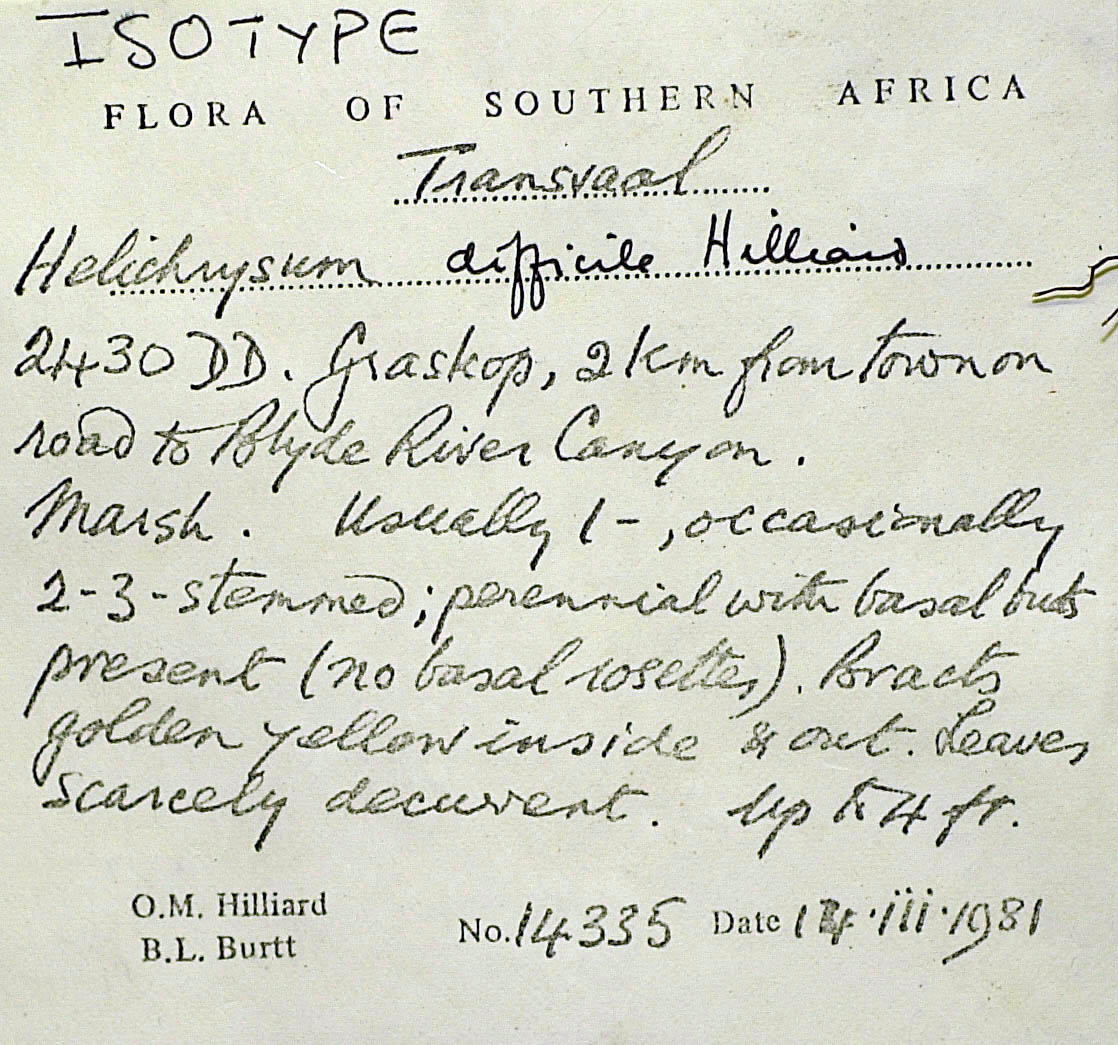 ISOTYPE
FLORA OF SOUTHERN AFRICA
Transvaal
Helichrysum difficile Hilliard
2430 DD. Graskop, 2 km from town on
road to Blyde River Canyon.
Marsh. Usually 1-, occasionally
2-3-stemmed; perennial with basal buds
present (no basal rosettes). Bracts
golden yellow inside & out. Leaves
scarcely decurrent. Up to 4 ft.
O.M. Hilliard
B.L. Burtt
No. 14335 Date 14.iii.1981